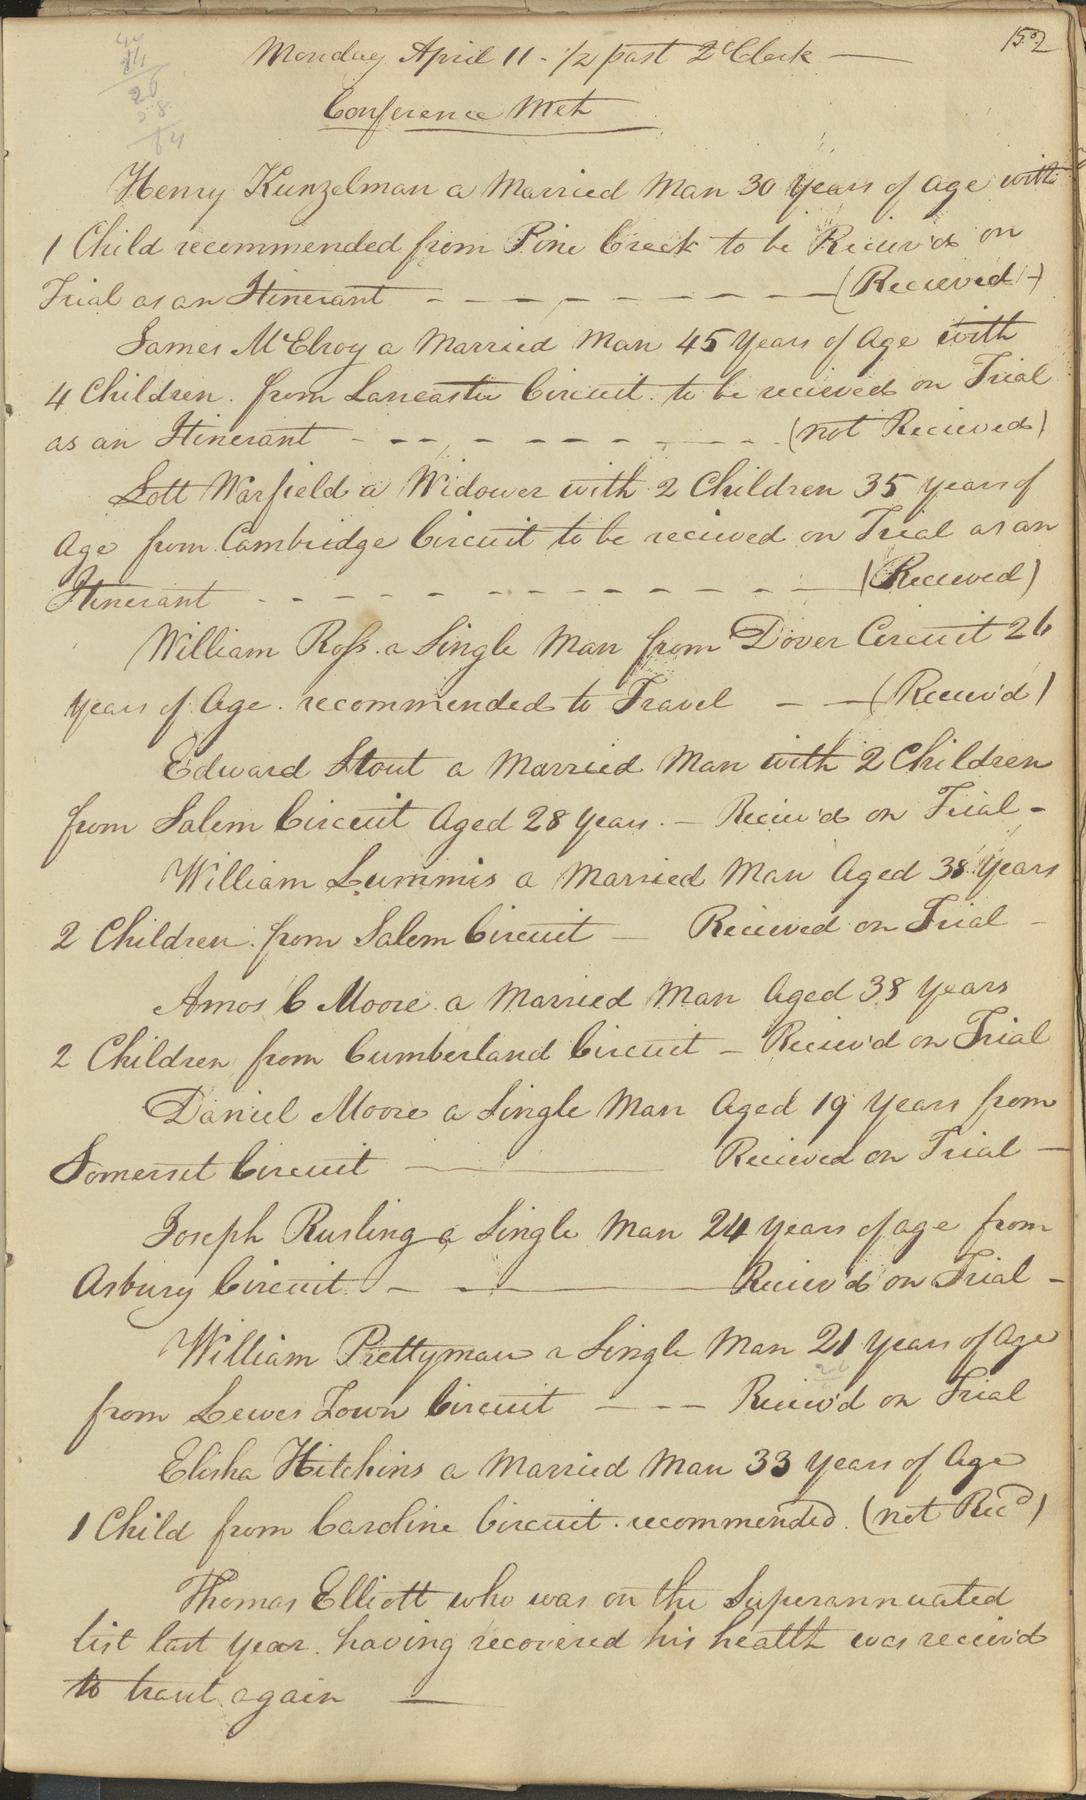 152
Monday April 11 - 1/2 past 2 o'Clock —
Conference Met
Henry Kunzelman a Married Man 30 Years of Age with
1 Child recommended from Pine Creek to be Reciev'd on
Trial as an Itinerant - - - - - - - - (Recieved)
James McElroy a Married Man 45 Years of Age with
4 Children. from Lancaster Circuit. to be recieved on Trial
as an Itinerant - - - - - - - - - (not Recieved)
Lott Warfield a Widower with 2 Children 35 years of
Age from Cambridge Circuit to be recieved on Trial as an
Itinerant - - - - - - - - - - - (Recieved)
William Ross. a Single Man from Dover Circuit 26
years of Age. recommended to Travel - - (Reciev'd)
Edward Stout a Married Man with 2 Children
from Salem Circuit Aged 28 years. — Reciev'd on Trial -
William Lummis a Married Man Aged 38 Years
2 Children. from Salem Circuit — Recieved on Trial -
Amos C Moore a Married Man Aged 38 Years
2 Children from Cumberland Circuit — Reciev'd on Trial
Daniel Moore a Single Man Aged 19 Years from
Somerset Circuit — Recieved on Trial —
Joseph Rusling a Single Man 24 years of age from
Asbury Circuit - - — Reciev'd on Trial -
William Prettyman a Single Man 21 years of Age
from Lewes Town Circuit - - - Reciev'd on Trial
Elisha Hitchins a Married Man 33 Years of Age
1 Child from Caroline Circuit. recommended. (not Recd)
Thomas Elliott who was on the Superannuated
list last year. having recovered his health was recievd
to travel again —